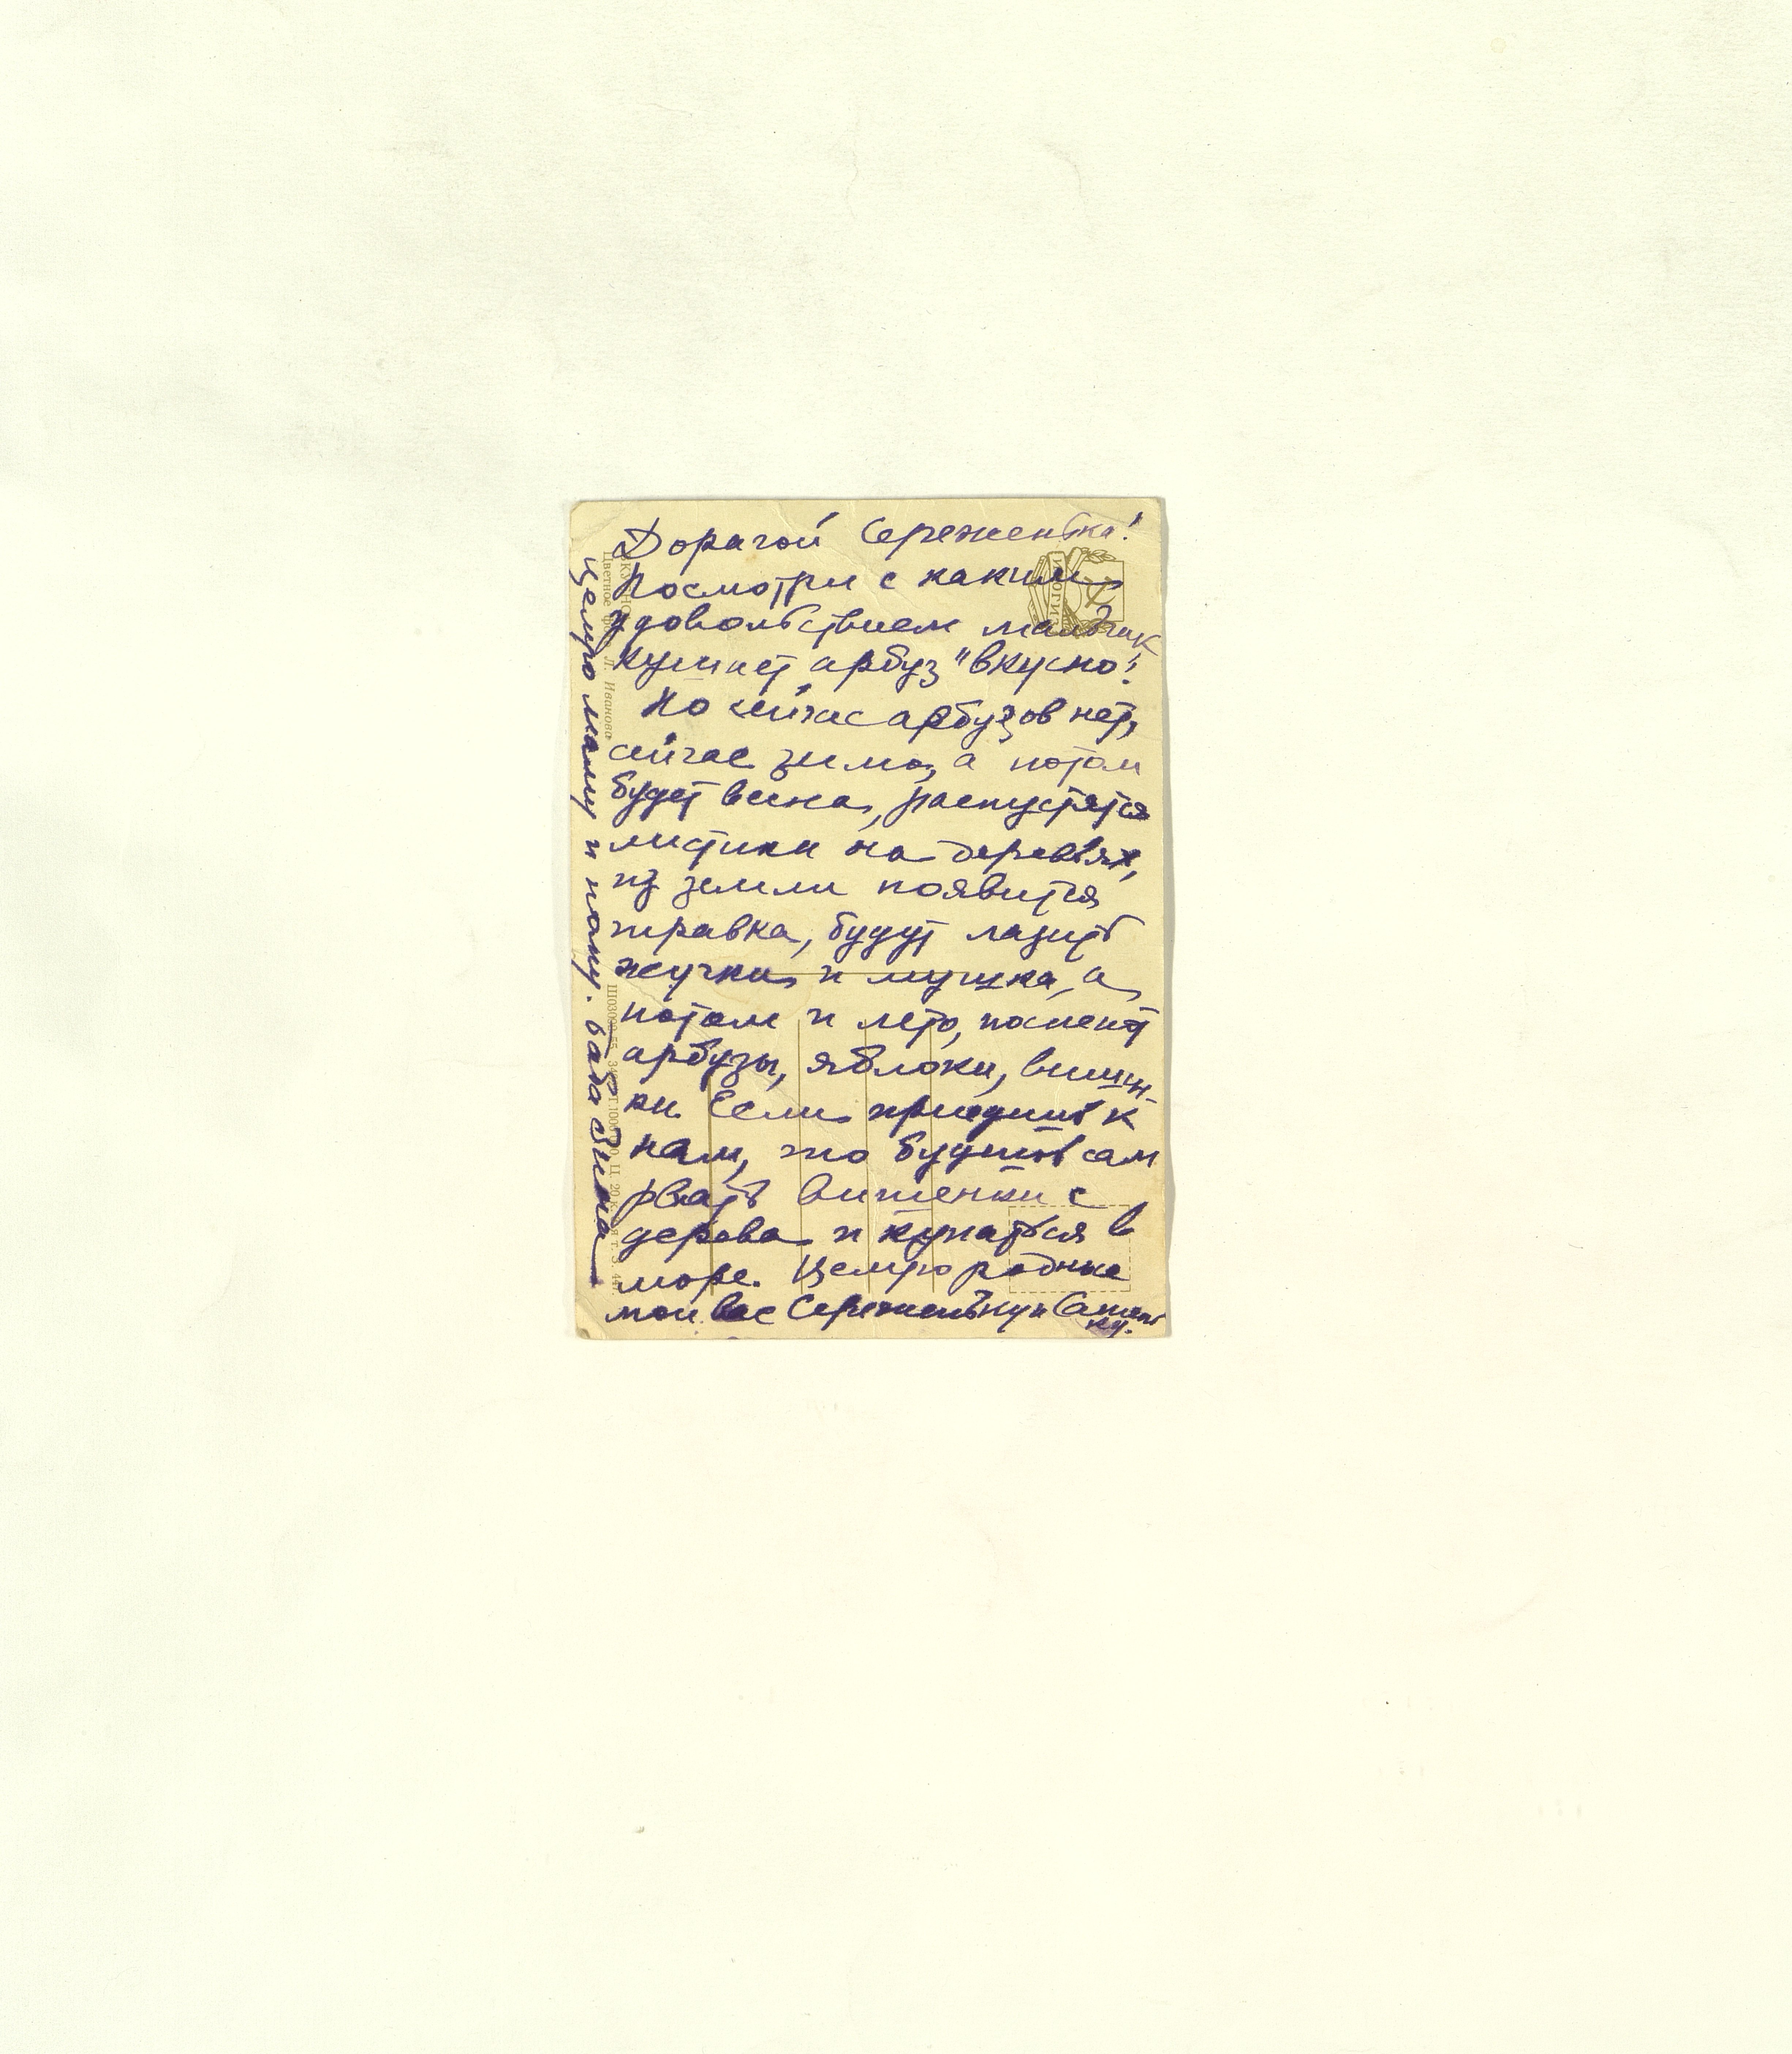 Дорагой Сереженька!
Посмотри с каким
удовольствием мальчик
кушает арбуз "вкусно!
Но сейчас арбузов нет,
сейчас зима, а потом
будет весна, распустятся
листики на деревьях,
из земли появится
травка, будут лазить
жучки и мушка, а
потом и лето, поспеют
арбузы, яблоки, вишен-
ки. Если приедишь к
нам, то будишь сам
рвать вишенки с
дерева и купаться в
море. Целую родные
мои вас Сереженьку и Сашень
ку.
целую маму и папу. баба Зина
ВКУСНО
Цветное Л. Иванова
ИЗОГИЗ